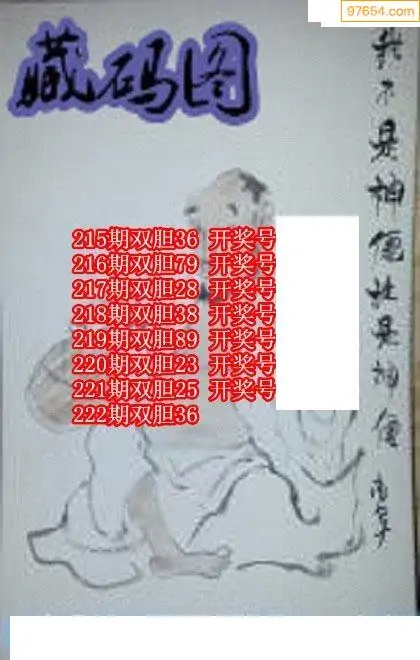 97654.com
藏码图
我不是神但我是神僊
215期双胆36 开奖号
216期双胆79 开奖号
217期双胆28 开奖号
218期双胆38 开奖号
219期双胆89 开奖号
220期双胆23 开奖号
221期双胆25 开奖号
222期双胆36